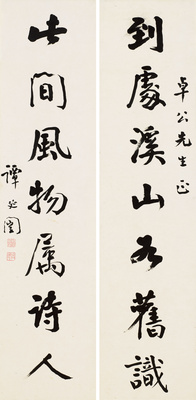 卓公先生正
到處溪山舊識
此間風物属詩人
譚延闓